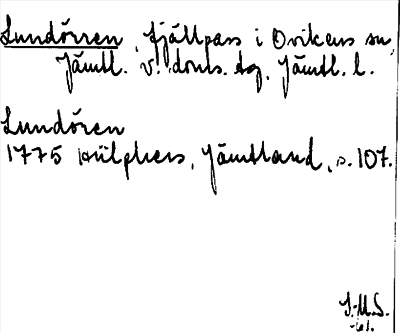 Lundörren, fjällpass i Ovikens sn,
Jämtl. v. doms. tg, Jämtl. l.
Lundören
1775 Hülphers, Jämtland, s. 107.
I.M.S.
-61.